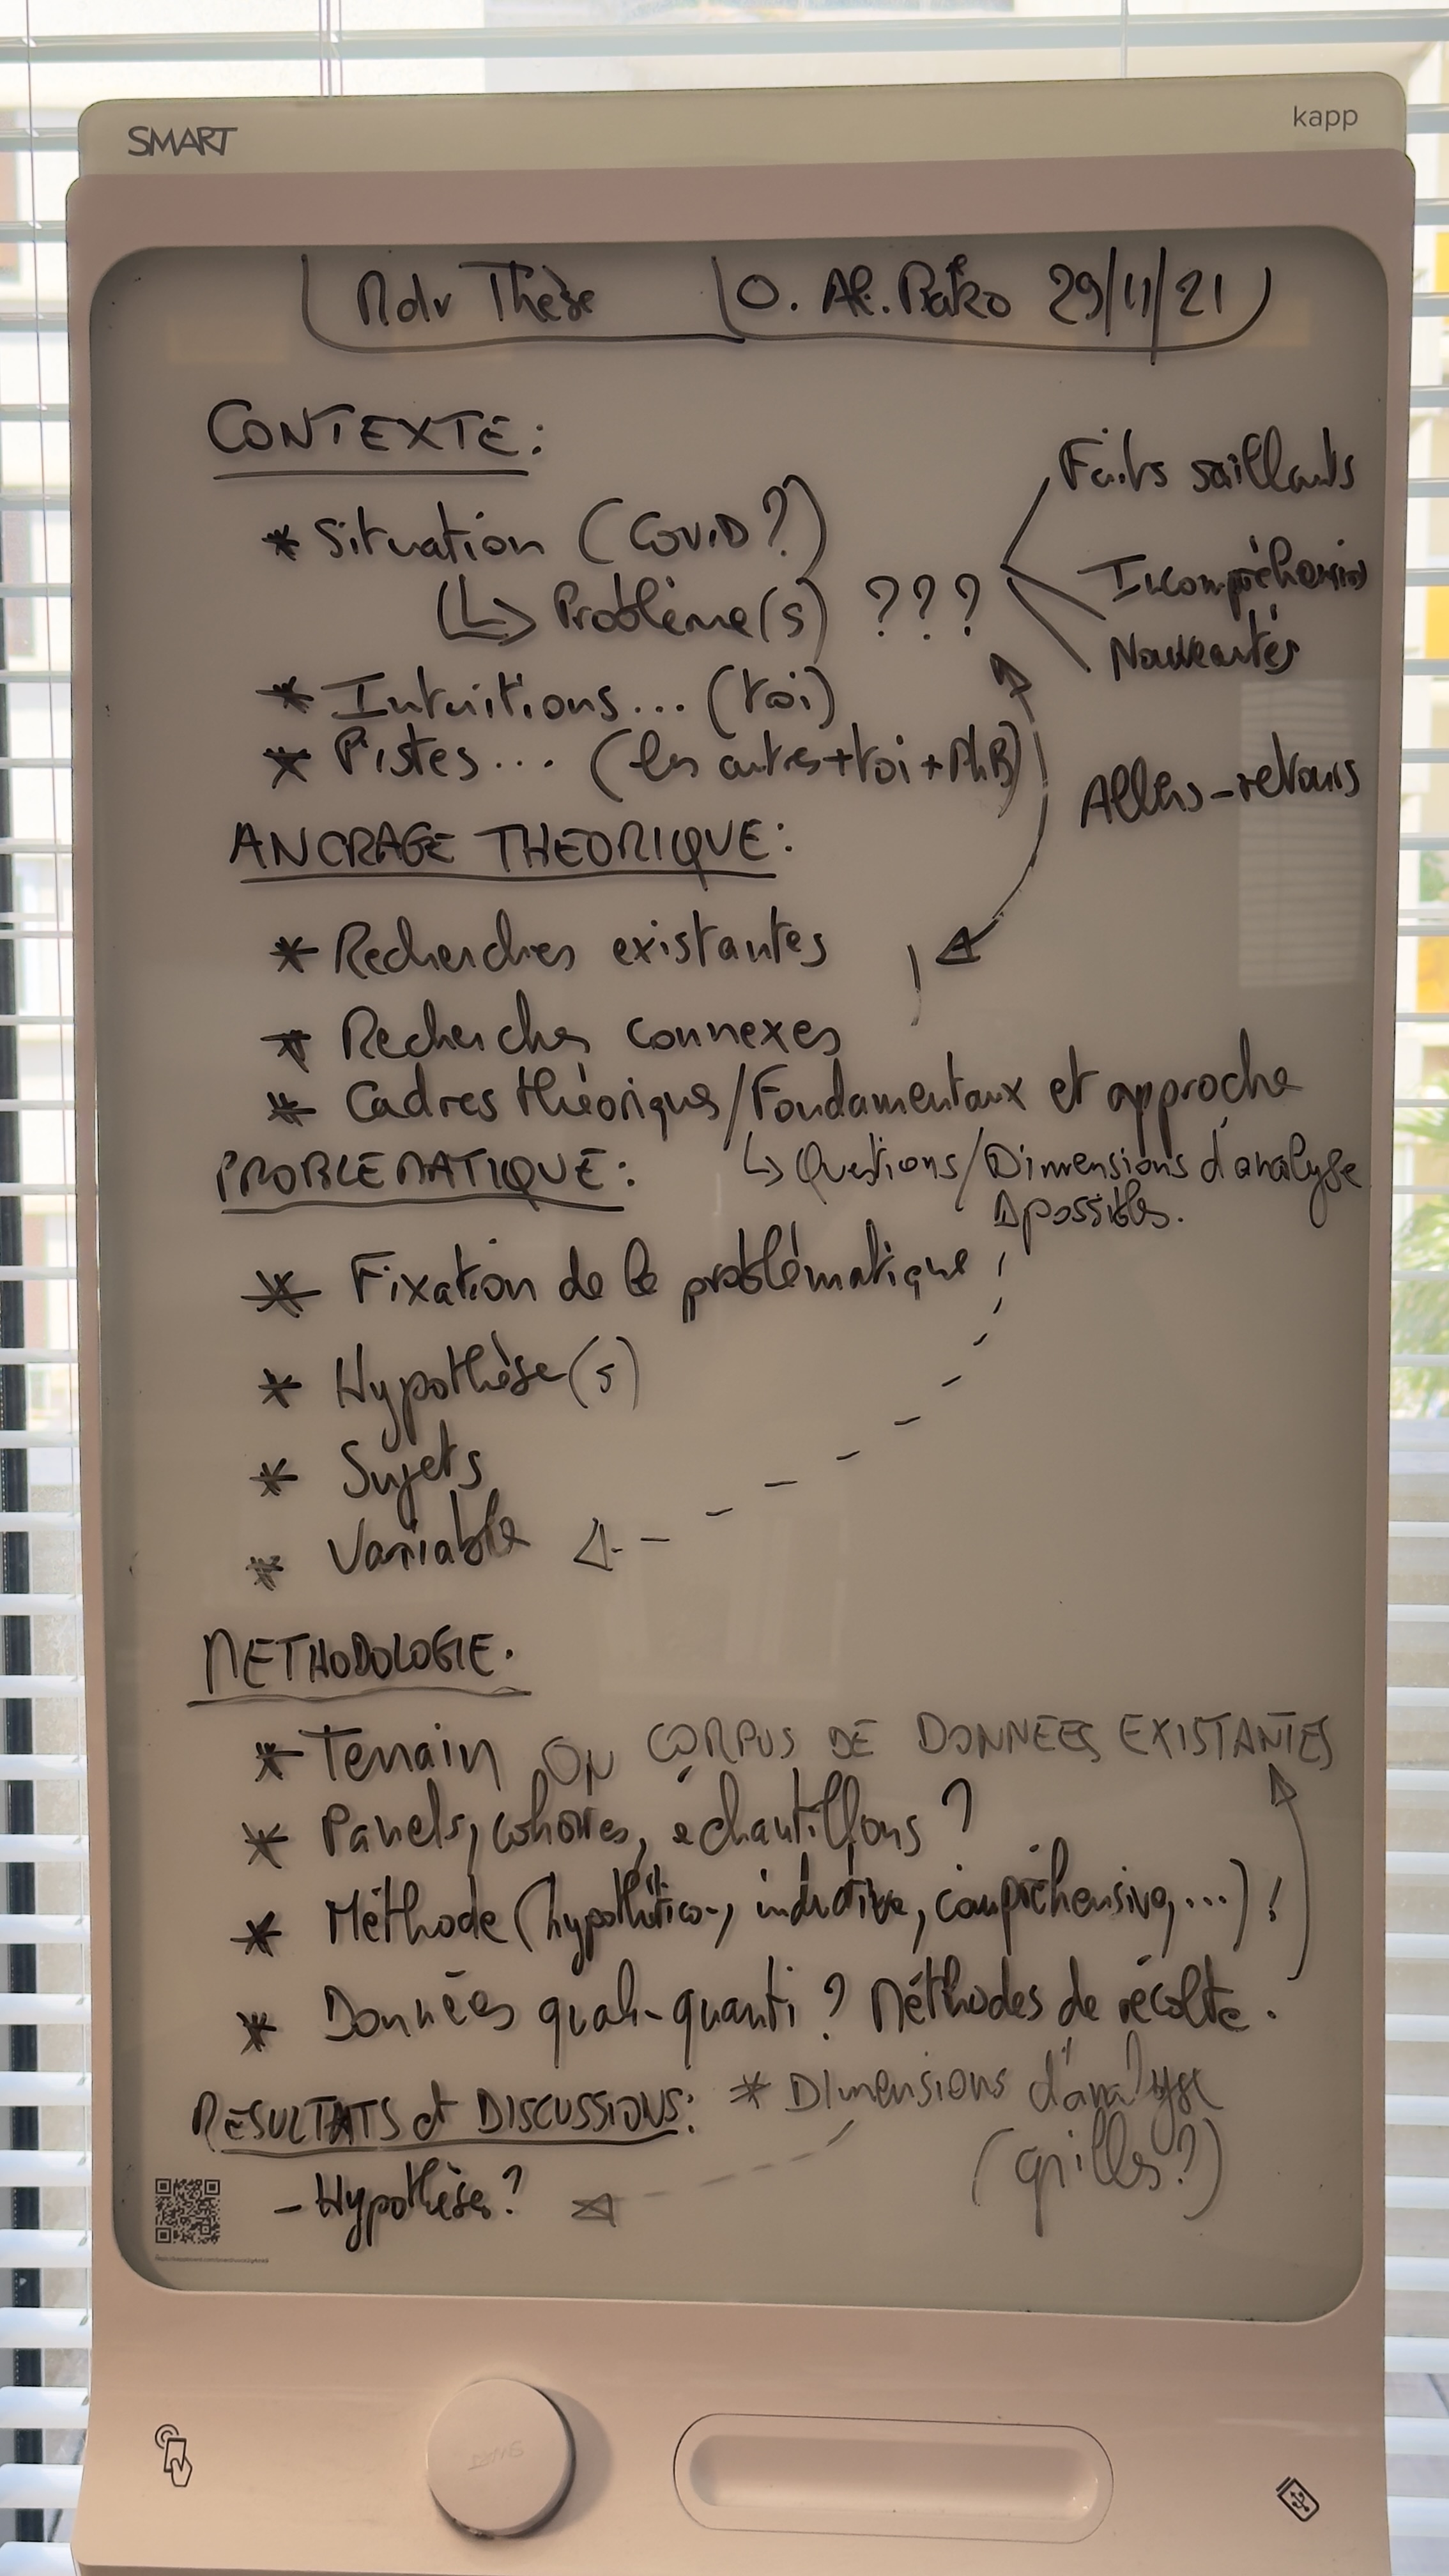 SMART
kapp
Rdv Thèse O. Al. 29/11/21
CONTEXTE:
* Situation (COVID?)
↳ Problème(s) ???
Faits saillants
Incompréhension
Nouveautés
* Intuitions... (toi)
* Pistes... (les autres+toi+PhB)
Allers-retours
ANCRAGE THEORIQUE:
* Recherches existantes
* Recherches connexes
* Cadres théoriques/Fondamentaux et approche
↳ Questions/Dimensions d'analyse
possibles.
PROBLEMATIQUE:
* Fixation de la problématique
* Hypothèse(s)
* Sujets
* Variable
METHODOLOGIE.
* Terrain OU CORPUS DE DONNEES EXISTANTES
* Panels, cohortes, échantillons ?
* Méthode (hypothético-, inductive, compréhensive, ...) !
* Données quali-quanti ? Méthodes de récolte.
* Dimensions d'analyse
(grilles?)
RESULTATS et DISCUSSIONS:
- Hypothèses?